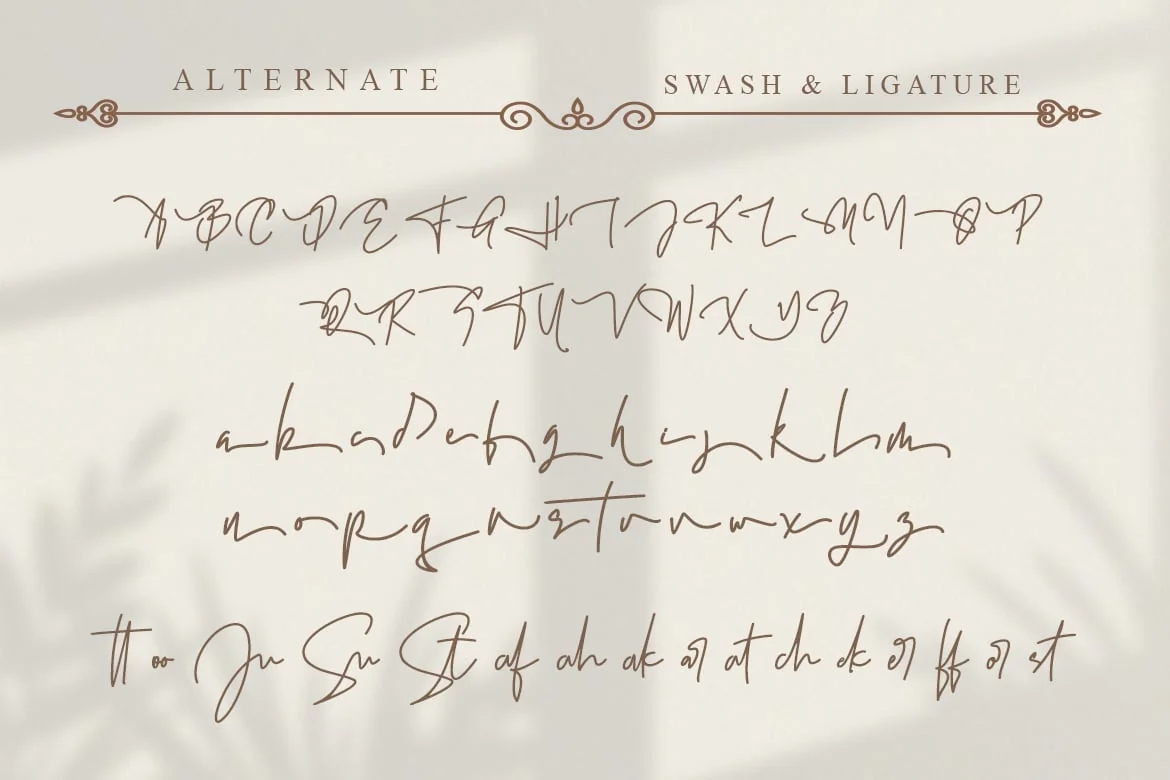 ALTERNATE
SWASH & LIGATURE
A B C D E F G H I J K L M N O P
Q R S T U V W X Y Z
a b c d e f g h i j k l m
n o p q r s t u v w x y z
tt oo Ju Su St af ah ak at ch ck ff st